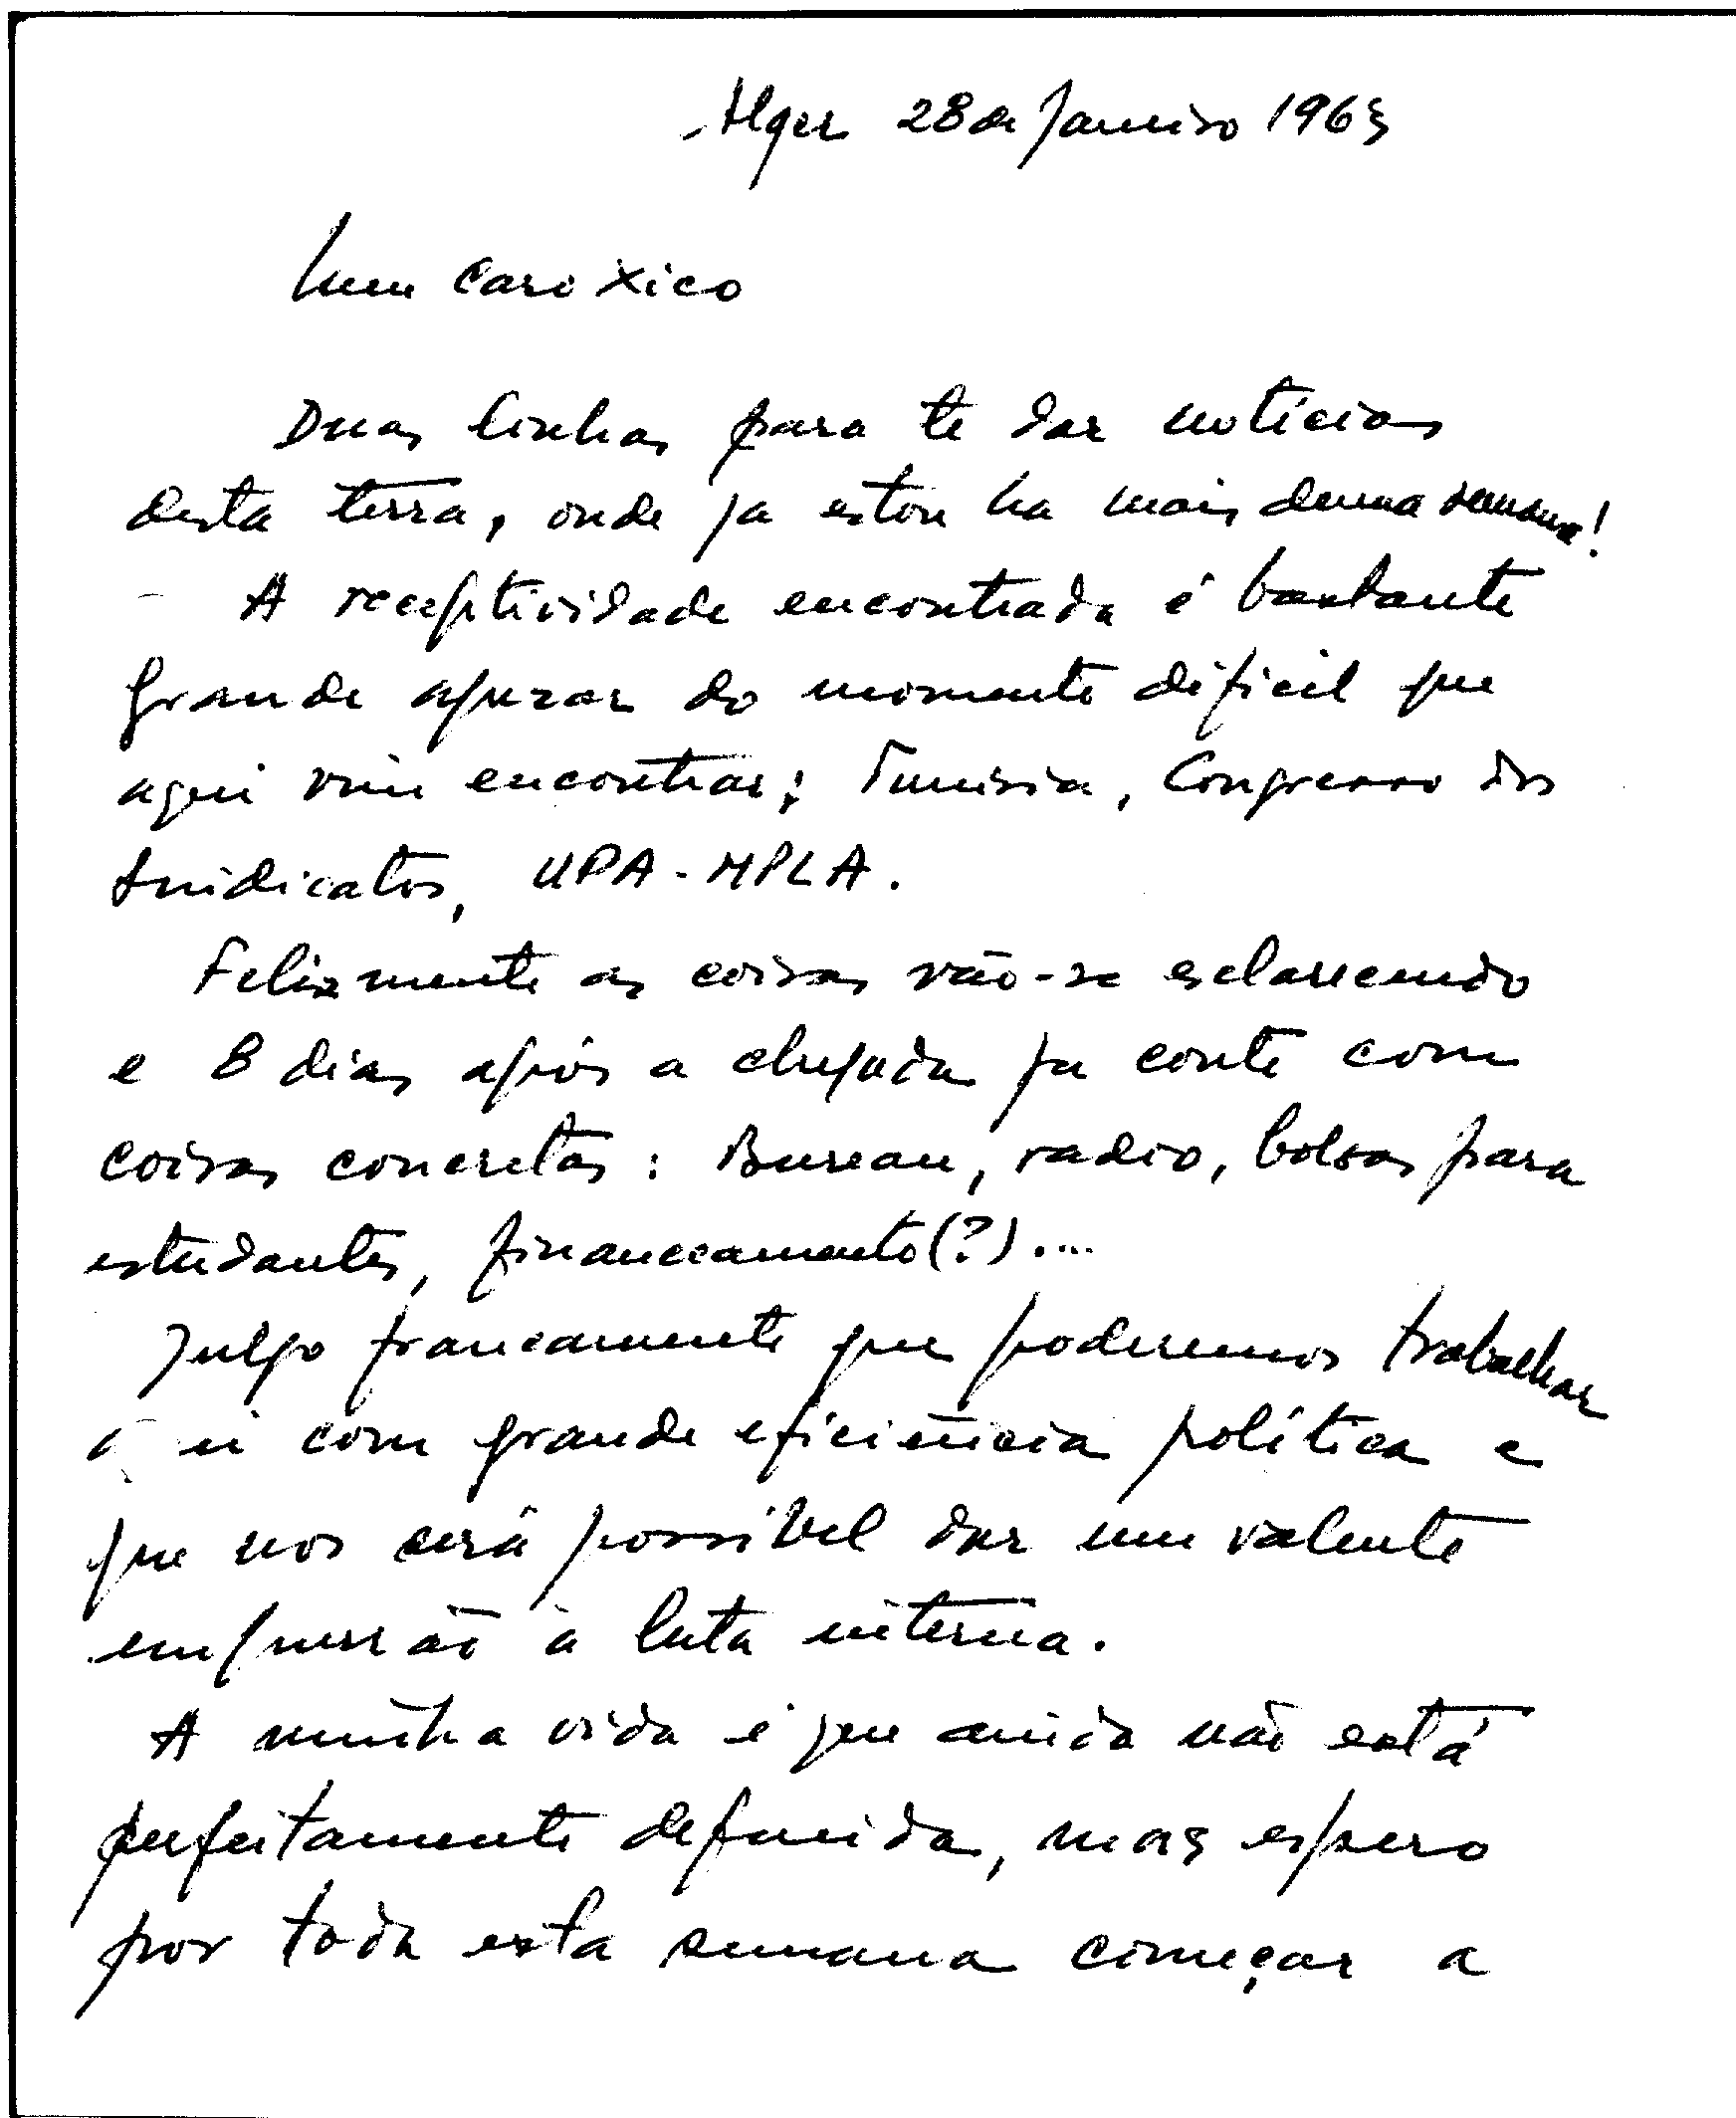 Alger 28 de Janeiro 1963
Meu caro Xico
Duas linhas para te dar notícias
desta terra, onde ja estou ha mais duma semana!
A receptividade encontrada é bastante
grande apezar do momento dificil que
aqui vim encontrar: Tunisia, Congresso dos
Sindicatos, UPA-MPLA.
Felizmente as coisas vão-se esclarecendo
e 8 dias após a chegada ja conto com
coisas concretas: Bureau, radio, bolsas para
estudantes, financeamento(?)....
Julgo francamente que poderemos trabalhar
com grande eficiência política e
que nos será possível dar um valente
empurrão à luta interna.
A minha vida é que ainda não está
perfeitamente definida, mas espero
por toda esta semana começar a